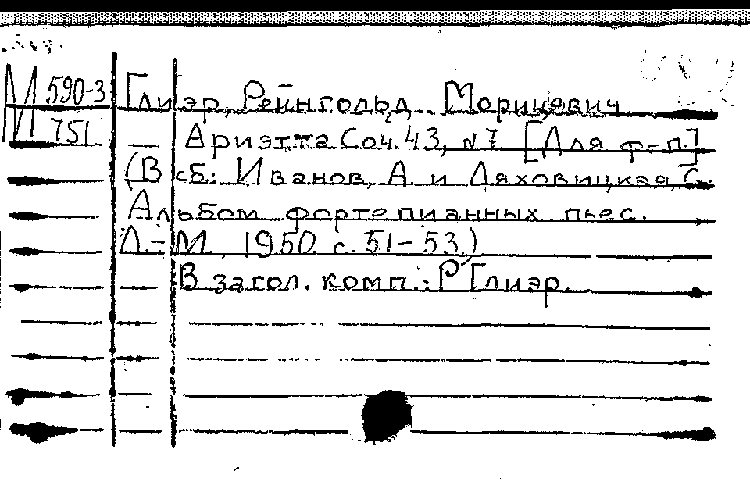 М 590-3 Глиэр, Рейнгольд Морицевич
М 751 Ариэтта Соч. 43, №7 [Для ф-п.]
(В сб: Иванов, А и Ляховицкая С.
Альбом фортепианных пьес.
Л.-М. 1950 с. 51-53)
В загол. комп.: Р Глиэр.